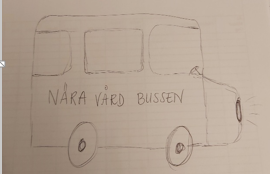 NÄRA VÅRD BUSSEN